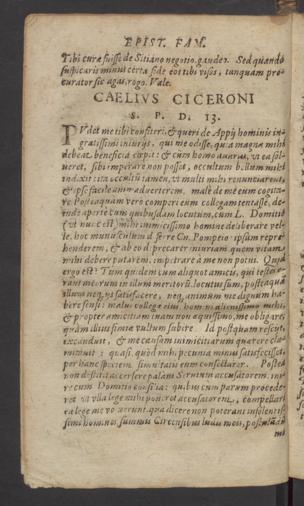 EPIST. FAM.
Tibi curæ fuisse de Sitiano negotio, gaudeo. Sed quando
suspicaris minus certa fide eos tibi visos, tanquam pro-
curator sic agas, rogo. Vale.
CAELIVS CICERONI
S. P. D. 13.
PVdet me tibi confiteri, & queri de Appij hominis in-
gratissimi iniurijs. qui me odisse, quia magna mihi
debeat beneficia, cœpit: & cum homo auarus, vt ea sol-
ueret, sibi imperare non posset, occultum bellum mihi
indixit: ita occultum tamen, vt multi mihi renunciarent,
& ipse facile animaduerterem. male de me eum cogita-
re. Posteaquam vero comperi eum collegam tentasse, de-
inde aperte cum quibusdam locutum, cum L. Domitio
(vt nunc est) mihi inimicissimo homine deliberare vel-
le, hoc munusculum deferre Cn. Pompeio: ipsum repre-
henderem, & ab eo deprecarer iniuriam, quem vitam
mihi debere putarem, impetrare à me non potui. Quid
ergo est? Tum quidem cum aliquot amicis, qui testes e-
rant meorum in illum meritorum locutus sum, postea quam
illum neque vt satisfacere, neq; animum me dignum ha-
bere sensi: malui collegæ eius, homini alienissimo mihi,
& propter amicitiam tuam non æquissimo, me obligare,
quam illius simiæ vultum subire. Id postquam resciit,
excanduit, & me causam inimicitiarum quærere cla-
mitauit: quasi, quòd mihi pecunia minus satisfecisset,
per hanc speciem simultatis eum consectarer. Postea
non destitit accersere palam Seruium accusatorem, ine-
re cum Domitio consilia: quibus cum parum procede-
ret vt vlla lege mihi ponerent accusatorem, compellari
ea lege me voluerunt, qua dicere non poterant. insolentis-
simi homines summis Circensibus ludis meis, postulan-